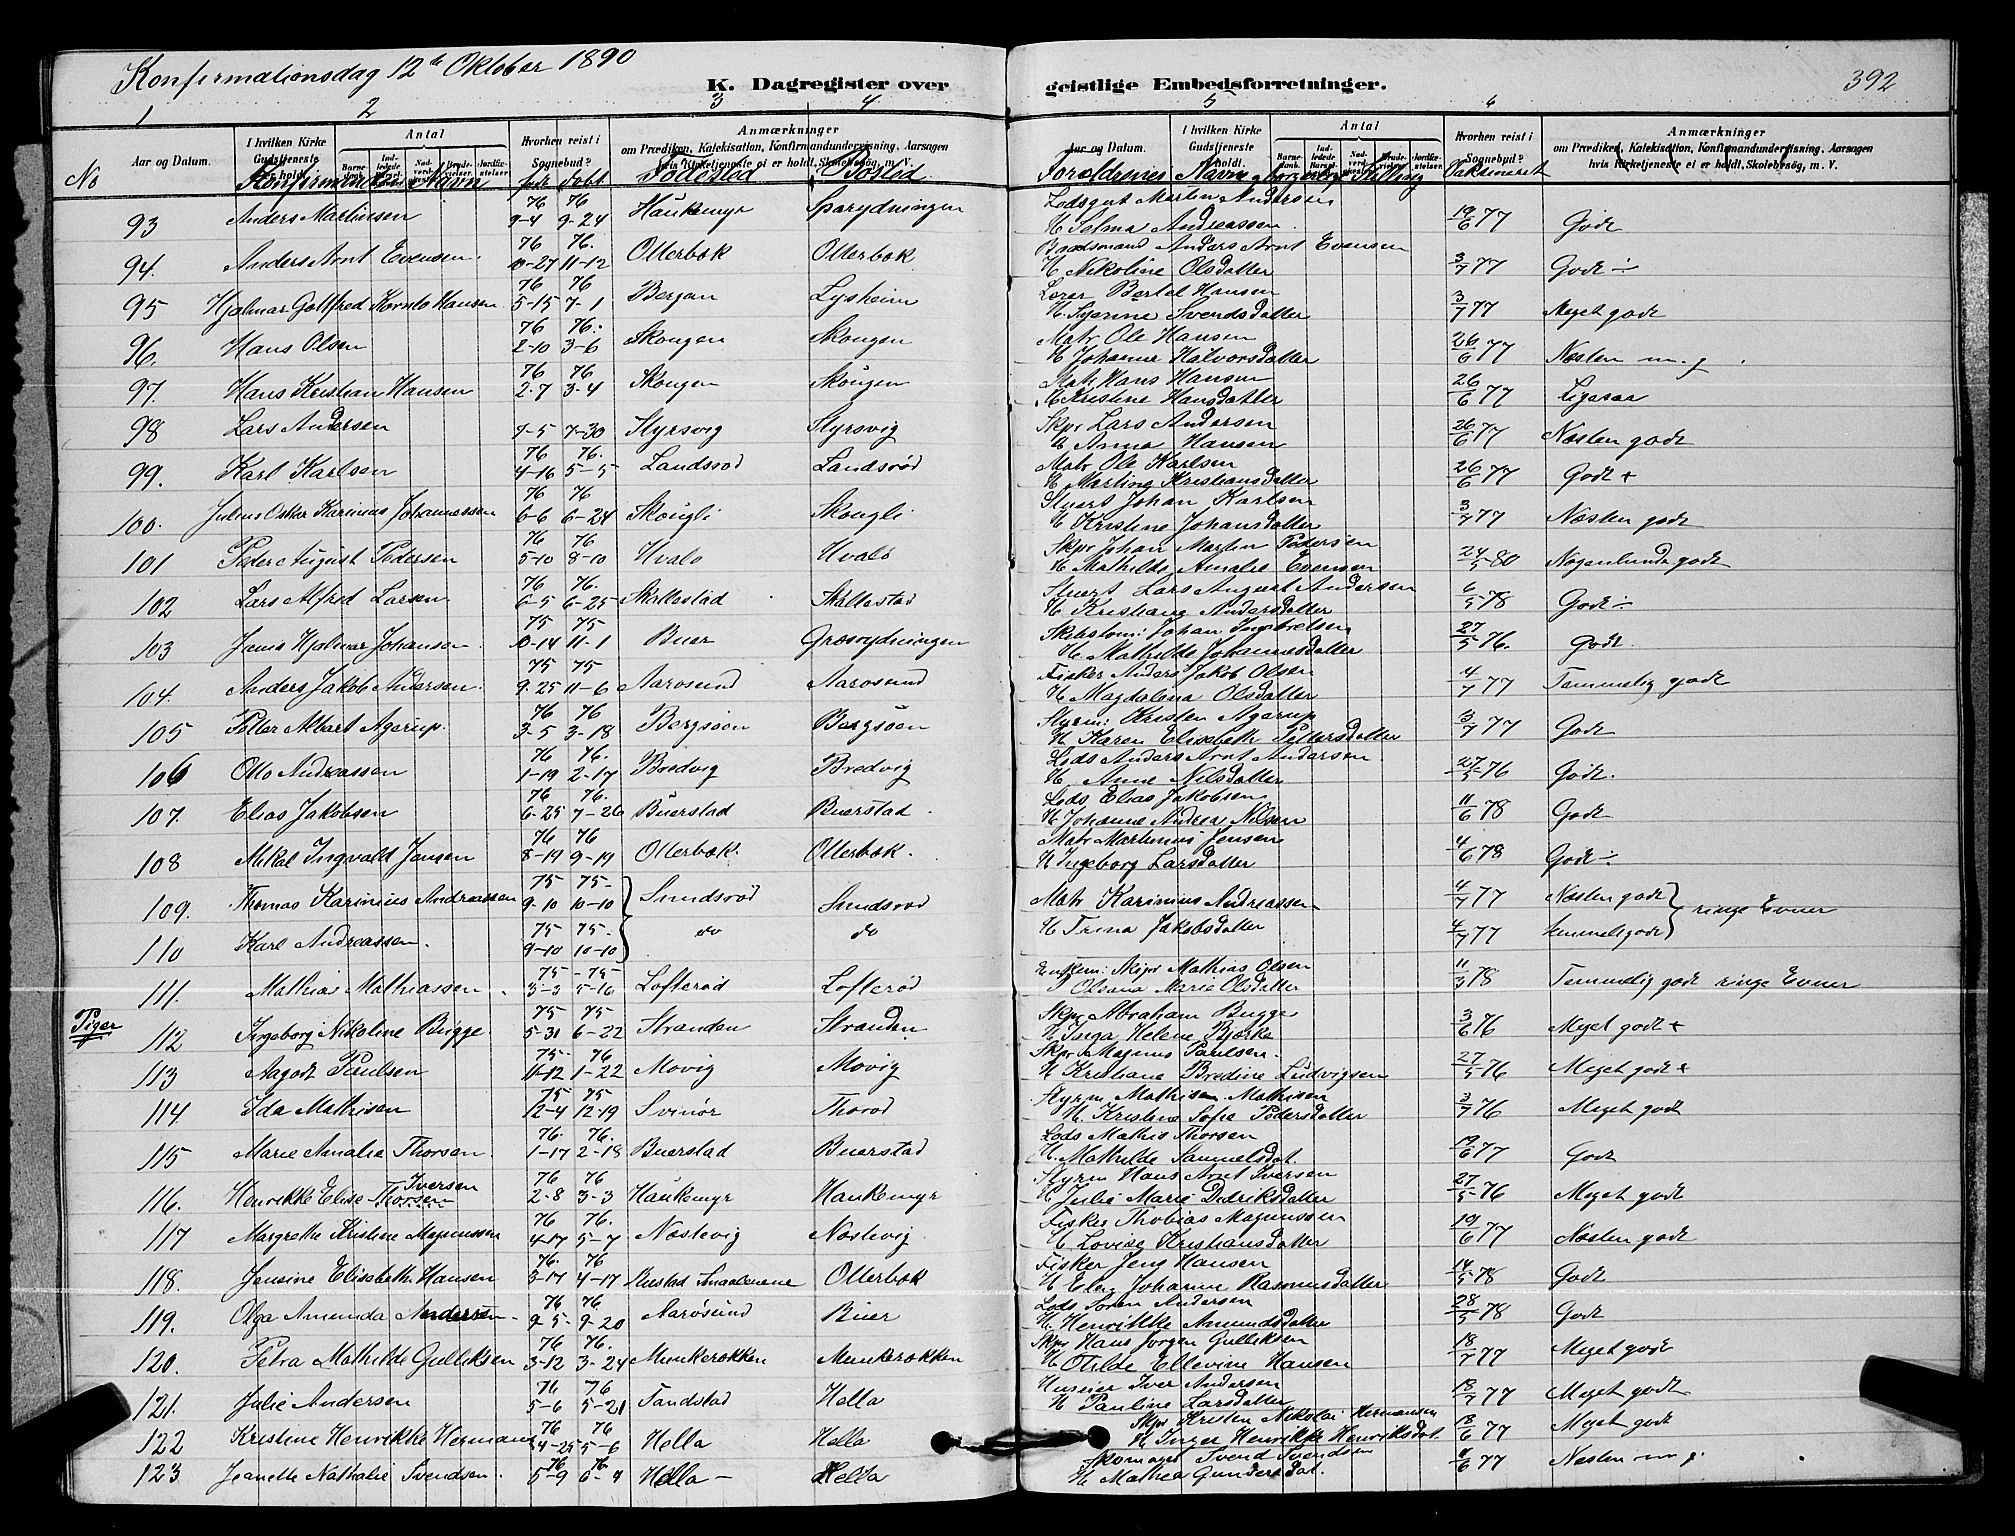 Konfirmationsdag 12te Oktober 1890
K. Dagregister over geistlige Embedsforretninger. 392
1 2 3 4 5 6
Aar og Datum. I hvilken Kirke Gudstjeneste er holdt. Antal Hvorhen reist i Sognebud? Anmærkninger om Prædiken, Katekisation, Konfirmandundervisning, Aarsagen hvis Kirketjeneste ei er holdt, Skolebesøg, m. V.
Aar og Datum. I hvilken Kirke Gudstjeneste er holdt. Antal Hvorhen reist i Sognebud? Anmærkninger om Prædiken, Katekisation, Konfirmandundervisning, Aarsagen hvis Kirketjeneste ei er holdt, Skolebesøg, m. V.
No Konfirmandens Navn født døbt Fødested Bosted Forældrenes Navn og borgerlig Stilling Vaksineret
93 Anders Martinsen 76 9-4 76 9-24 Haukemyr Sparydningen Lodsgut Martin Andersen H Selma Andreassen 19/6 77 Godt
94. Anders Arnt Evensen 76 10-27 76. 11-12 Ollerbæk Ollerbæk Baadsmand Anders Arnt Evensen H Nikoline Olsdatter 3/7 77 Godt ÷
95 Hjalmar Gottfred Kornelo Hansen 76 5-15 76 7-1 Bergan Lysheim Lærer Bertel Hansen H. Syrine Svendsdatter 3/7 77 Meget godt
96. Hans Olsen 76 2-10 76. 3-6 Skougen Skougen Matr Ole Hansen H Johanne Halvorsdatter 26/6 77 Næsten m. g.
97. Hans Kristian Hansen 76 2-7 76 3-4 Skougen Skougen Matr Hans Hansen H Kristine Hansdatter 26/6 77 Ligesaa
98 Lars Andersen 7-5 7-30 Styrsvig Styrsvig Skpr Lars Andersen H Anna Hansen 26/6 77 Næsten godt
99. Karl Karlsen 76 4-16 76. 5-5 Landsrød Landsrød Matr Ole Karlsen H Martine Kristiansdatter 26/6 77 Godt +
100. Julius Oskar Karinius Johannessen 76 6-6 76 6-24 Skougli Skougli Stuert Johan Karlsen H Kristine Johansdatter 3/7 77 Næsten godt
101 Peder August Pedersen 76 5-10 76 8-10 Hvalø Hvalø Skpr Johan Martin Pedersen H Mathilde Amalie Evensen 24/5 80 Nogenlunde godt
102 Lars Alfred Larsen 76 6-5 76. 6-25 Skallestad Skallestad Stuert Lars August Andersen H Kristiane Andersdatter 6/5 78 Godt ÷
103 Jens Hjalmar Johansen 75 10-14 75 11-1 Buer Græsrydningen Skibstøm: Johan Ingebretsen H Mathilde Johannesdatter 27/5 76. Godt.
104. Anders Jakob Andersen. 75 9-25 75 11-6 Aarøsund Aarøsund Fisker Anders Jakob Olsen H Magdalena Olsdatter 4/7 77 Temmelig godt
105 Petter Albert Agerup. 76 3-5 76 3-18 Bergsøen Bergsøen Styrm: Kristen Agerup H Karen Elisabeth Pettersdatter 3/7 77 Godt
106 Otto Andreassen 76 1-19 76. 2-17 Bredvig Bredvig Lods Anders Arnt Andersen H Anne Nilsdatter 27/5 76 Godt.
107. Elias Jakobsen 76 6-25 76. 7-26 Buerstad Buerstad Lods Elias Jakobsen H Johanne Andrea Nilsen 11/6 78 Godt
108 Mikal Ingvald Jensen 76 8-19 76 9-19 Ollerbæk. Ollerbæk. Matr Martinius Jensen H Ingeborg Larsdatter 4/6 78 Godt ÷
109. Thomas Karinius Andreassen 75 9-10 75- 10-10 Sundsrød Sundsrød Matr Karinius Andreassen 4/7 77 Næsten godt ringe Evner
110 Karl Andreassen. 75 9-10 75. 10-10 do do H Trina Jakobsdatter 4/7 77 temmelig godt
111. Mathias Mathiassen 75- 3-3 75- 5-16 Lofterød Lofterød Enkem: Skpr Mathias Olsen Olsana Marie Olsdatter 11/3 78 Temmelig godt ringe Evner
Piger
112 Ingeborg Nikoline Bugge. 75 5-31 75 6-22 Stranden Stranden Skpr Abraham Bugge H Inga Helene Bjerke 3/6 76 Meget godt +
113 Aagodt Paulsen 75- 11-12 76 1-22 Movig Movig Skpr Magnus Paulsen. H Kristiane Bredine Ludvigsen 27/5 76 Meget godt +
114. Ida Mathisen 75 12-4 75 12-19 Svinør Thorød Styrm Mathisen Mathisen H. Kristine Sofie Pedersdatter 3/7 76 Meget godt
115 Marie Amalie Thorsen 76. 1-17 76. 2-18 Buerstad Buerstad Lods Mathis Thorsen H. Mathilde Samuelsdat. 19/6 77 Godt
116. Henrikke Elise Thorsen Iversen 76 2-8 76 3-3 Haukemyr Haukemyr Styrm Hans Arnt Iversen H Julie Marie Didriksdatter 27/5 76 Meget godt
117 Margrethe Kristine Magnussen 76 4-17 76. 5-7 Næstevig Næstevig Fisker Thobias Magnussen H Lovise Kristiansdatter 19/6 77 Næsten godt
118. Jensine Elisabeth Hansen 76. 3-17 76 4-17 Smaalenene Ollerbæk Fisker Jens Hansen H Elen Johanne Rasmusdatter 14/5 78 Godt
119. Olga Amunda Andersen 76 9-5 76 9-20 Aarøsund Buer Lods Søren Andersen H. Henrikke Amundsdatter 28/5 78 Godt
120. Petra Mathilde Gulliksen 76 3-12 76. 3-24 Munkerøkken Munkerøkken Skpr Hans Jørgen Gulliksen H Otilde Ellevine Hansen 18/7 77 Meget godt
121. Julie Andersen 76 5-6 76 5-21 Tandstad Hella Huseier Iver Andersen H Pauline Larsdatter 18/7 77 Meget godt
122 Kristine Henrikke Hermans 76 4-25 76 5-6 Hella Hella Skpr Kristen Nikolai Hermansen H Inger Henrikke Henriksdat. 18/6 77 Meget godt
123 Jeanette Nathalie Svendsen. 76 5-9 76 6-4 Hella - Hella Skomager Svend Svendsen H Mathea Gundersdat. 4/6 77 Næsten m g.